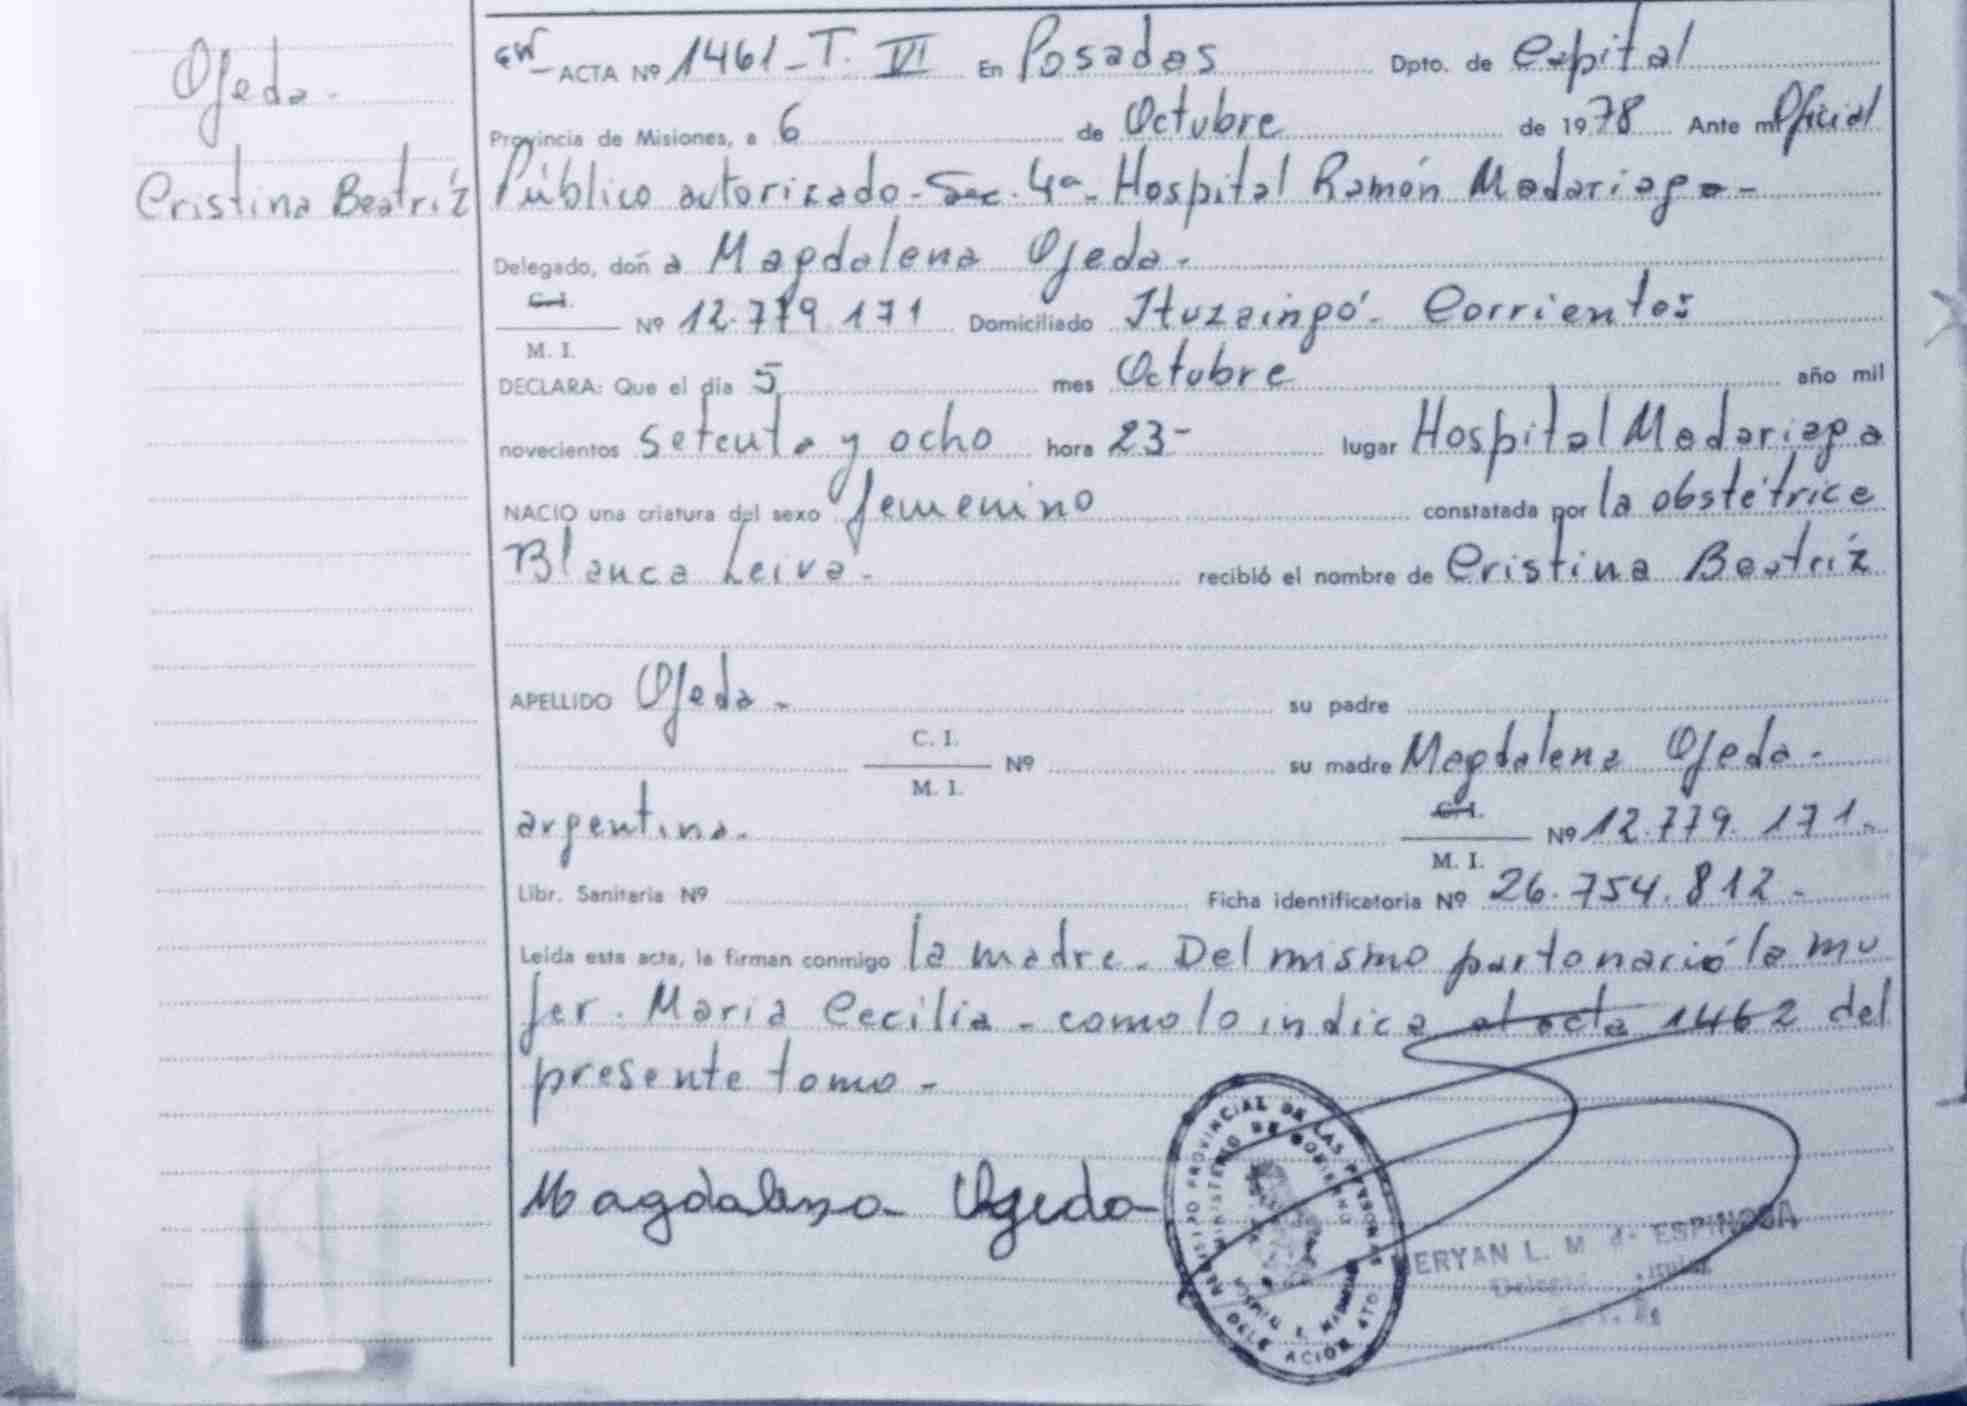 Ojeda.
Cristina Beatríz
ACTA Nº 1461-T. VI En Posadas Dpto. de Capital
Provincia de Misiones, a 6 de Octubre de 1978 Ante mí Oficial
Público autorizado-Sec. 4ª-Hospital Ramón Madariaga-
Delegado, don a Magdalena Ojeda.
C. I.
Nº 12.779.171 Domiciliado Ituzaingó- Corrientes
M. I.
DECLARA: Que el día 5 mes Octubre año mil
novecientos setenta y ocho hora 23- lugar Hospital Madariaga
NACIO una criatura del sexo femenino constatada por la obstétrice
Blanca Leiva- recibió el nombre de Cristina Beatríz
APELLIDO Ojeda- su padre
C. I.
Nº su madre Magdalena Ojeda-
M. I.
argentina. C. I.
Nº 12.779.171-
M. I.
Libr. Sanitaria Nº Ficha identificatoria Nº 26.754.812-
Leída esta acta, la firman conmigo la madre. Del mismo parto nació la mu
jer. Maria Cecilia- como lo indica el acta 1462 del
presente tomo-
Magdalena Ojeda
REGISTRO PROVINCIAL DE LAS PERSONAS
MINISTERIO DE GOBIERNO
DELEGACION
L. M. de ESPINOSA